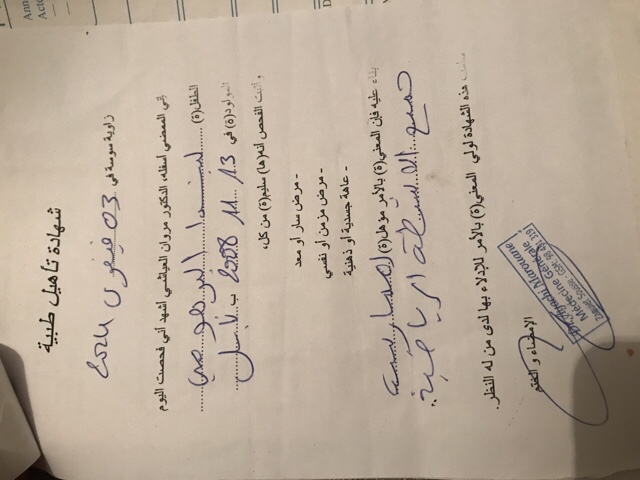 شهادة تأهيل طبية
زاوية سوسة في 03 فيفري 2024
إني الممضي أسفله، الدكتور مروان العياشي أشهد أني فحصت اليوم
الطفل(ة)
المولود(ة) في 13 11 2008 ب نابل
و أثبت الفحص أنه(ها) سليم(ة) من كل:
- مرض سار أو معد
- مرض مزمن أو نفسي
- عاهة جسدية أو ذهنية
بناء عليه فإن المعني(ة) بالأمر مؤهل(ة) لممارسة
جميع الأنشطة الرياضية
سلمت هذه الشهادة لولي المعني(ة) بالأمر للإدلاء بها لدى من له النظر.
الإمضاء و الختم
Dr. Ayachi Marouane
Médecine Générale
Zaouiet Sousse - GSM: 98 491 319
Ann
Acte